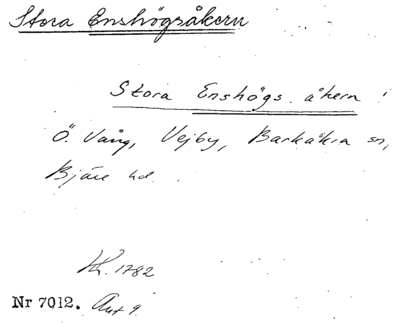 Stora Enshögsåkern
Stora Enshögs åkern i
Ö. Vång, Vejby, Barkåkra sn,
Bjäre hd.
Kh. 1782
Nr 7012. Akt 9